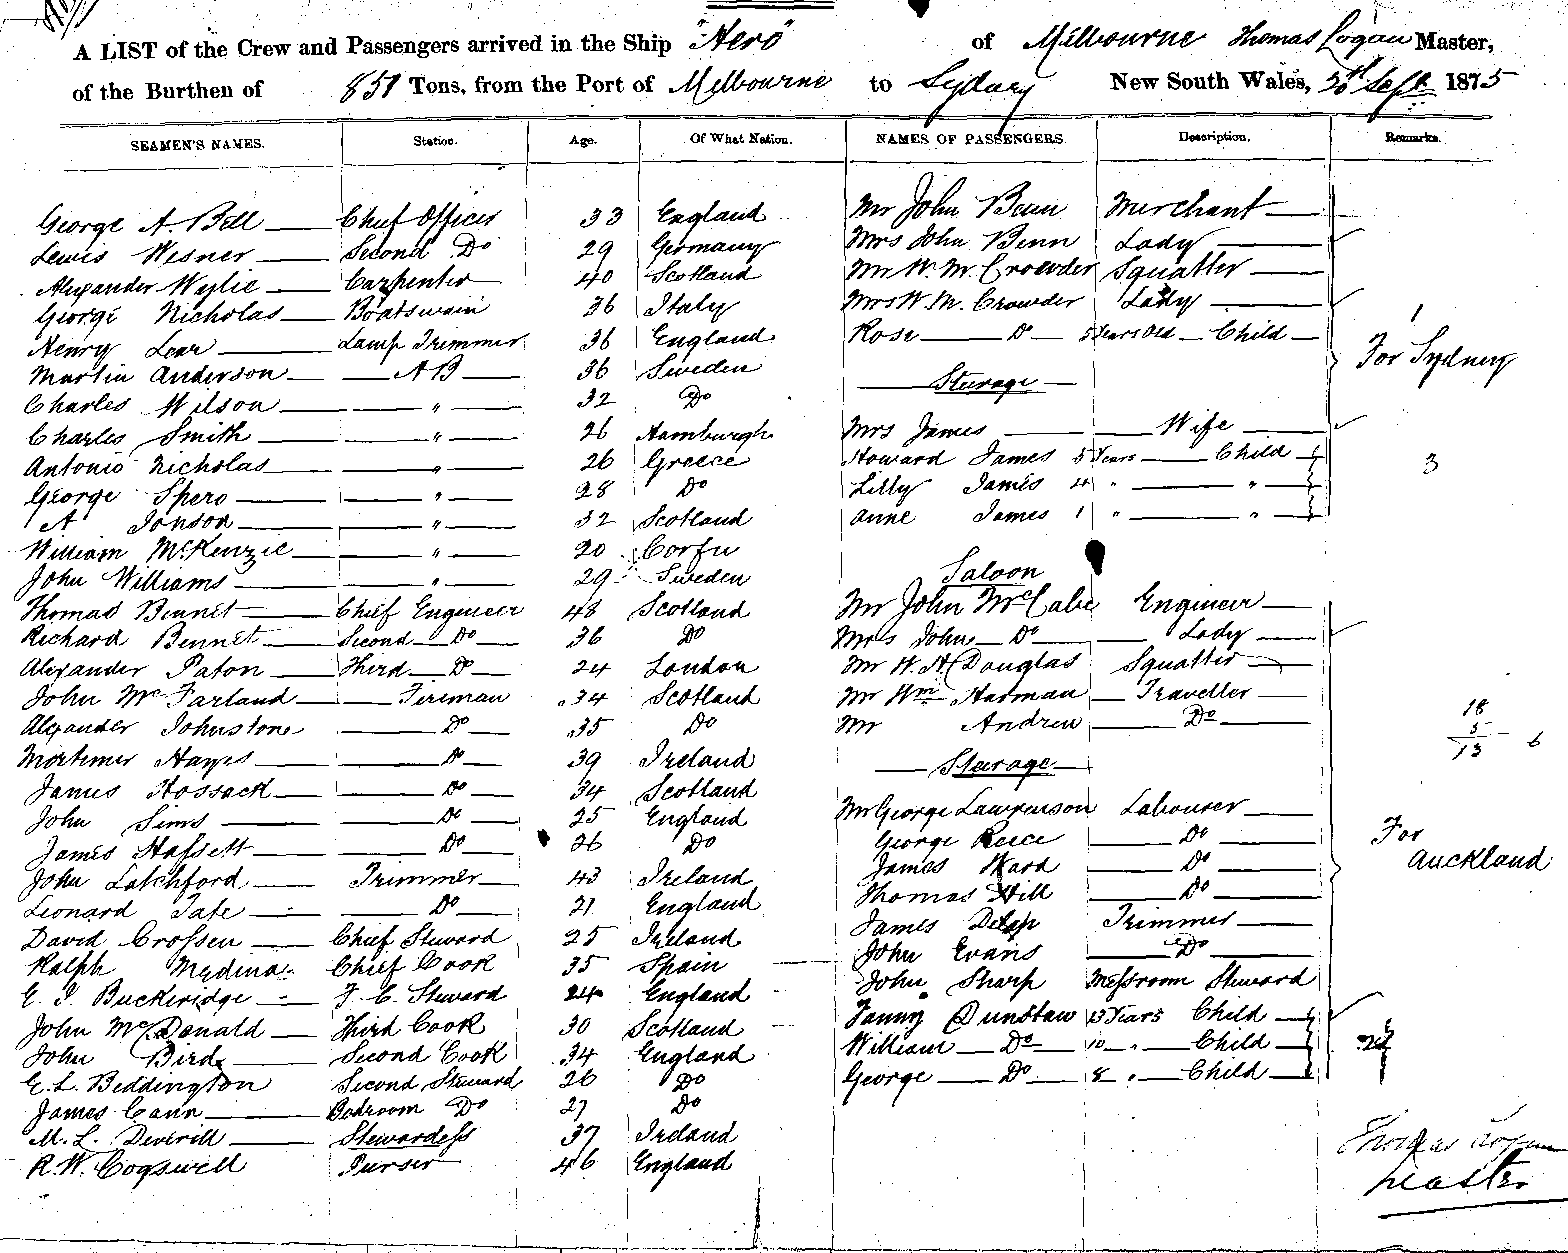 A LIST of the Crew and Passengers arrived in the Ship "Hero" of Melbourne Thomas Logan Master,
of the Burthen of 851 Tons, from the Port of Melbourne to Sydney New South Wales, Sept. 1875
SEAMEN'S NAMES. Station. Age. Of What Nation. NAMES OF PASSENGERS. Description. Remarks.
George A. Bell — Chief Officer 33 England
Lewis Wesner — Second Do 29 Germany
Alexander Wylie — Carpenter 40 Scotland
George Nicholas — Boatswain 36 Italy
Henry Lear — Lamp Trimmer 36 England
Martin Anderson — AB — 36 Sweden
Charles Wilson — " — 32 Do
Charles Smith — " — 26 Hamburgh
Antonio Nicholas — " — 26 Greece
George Spero — " — 28 Do
A Jonson — " — 32 Scotland
William McKenzie — " — 20 Corfu
John Williams — " — 29 Sweden
Thomas Bennet — Chief Engineer 48 Scotland
Richard Bennet — Second — Do 36 Do
Alexander Paton — Third — Do 24 London
John McFarland — Fireman 34 Scotland
Alexander Johnstone — Do — 35 Do
Mortimer Hayes — Do — 39 Ireland
James Hossack — Do — 34 Scotland
John Sims — Do — 25 England
James Hassett — Do 26 Do
John Latchford — Trimmer — 43 Ireland
Leonard Tate — Do — 21 England
David Crossen — Chief Steward 25 Ireland
Ralph Medina — Chief Cook 35 Spain
E. J. Buckeridge — F. C. Steward 24 England
John McDonald — Third Cook 30 Scotland
John Bird Second Cook 34 England
E. L. Beddington Second Steward 26 Do
James Cann — Bedroom Do 27 Do
M. L. Deverill — Stewardess 37 Ireland
R. W. Cogswell Purser 46 England
Mr John Benn Merchant —
Mrs John Benn Lady —
Mr W. M. Crowder Squatter —
Mrs W. M. Crowder Lady —
Rose — Do — 5 Years Old — Child —
— Steerage —
Mrs James — Wife —
Howard James 5 Years — Child —
Lilly James 4 " — " —
Anne James 1 " — " —
For Sydney
3
Saloon
Mr John McCabe Engineer —
Mrs John — Do — Lady —
Mr W. H. Douglas Squatter —
Mr Wm Harman — Traveller —
Mr Andrew — Do —
— Steerage —
Mr George Lawrenson Labourer —
George Reece — Do —
James Ward — Do —
Thomas Hill — Do —
James Delap Trimmer —
John Evans — Do —
John Sharp Messroom Steward
Fanny Dunstan 13 Years Child —
William — Do — 10 " — Child —
George — Do — 8 " — Child —
18
5
13 — 6
For
Auckland
Thomas Logan
Master